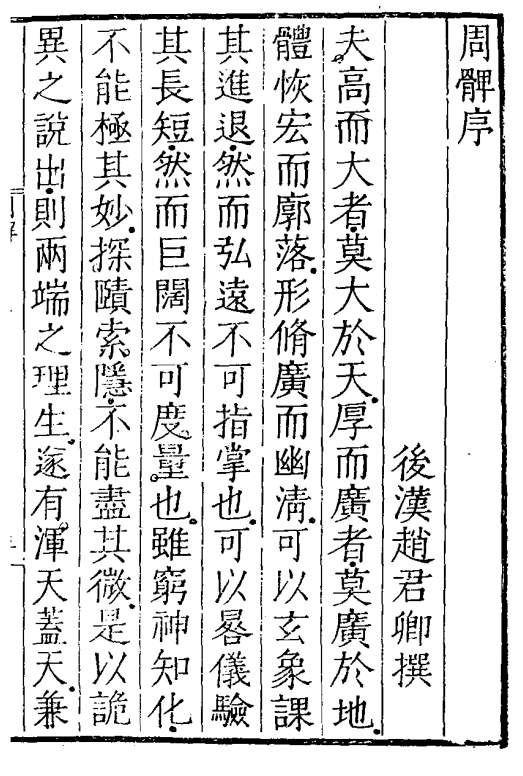 周髀序
後漢趙君卿撰
夫。高而大者。莫大於天。厚而廣者。莫廣於地。
體恢宏而廓落。形脩廣而幽清。可以玄象課
其進退。然而弘遠不可指掌也。可以晷儀驗
其長短。然而巨闊不可度量也。雖窮神知化。
不能極其妙。探賾索隱。不能盡其微。是以詭
異之說出。則兩端之理生。遂有。渾天蓋天。兼